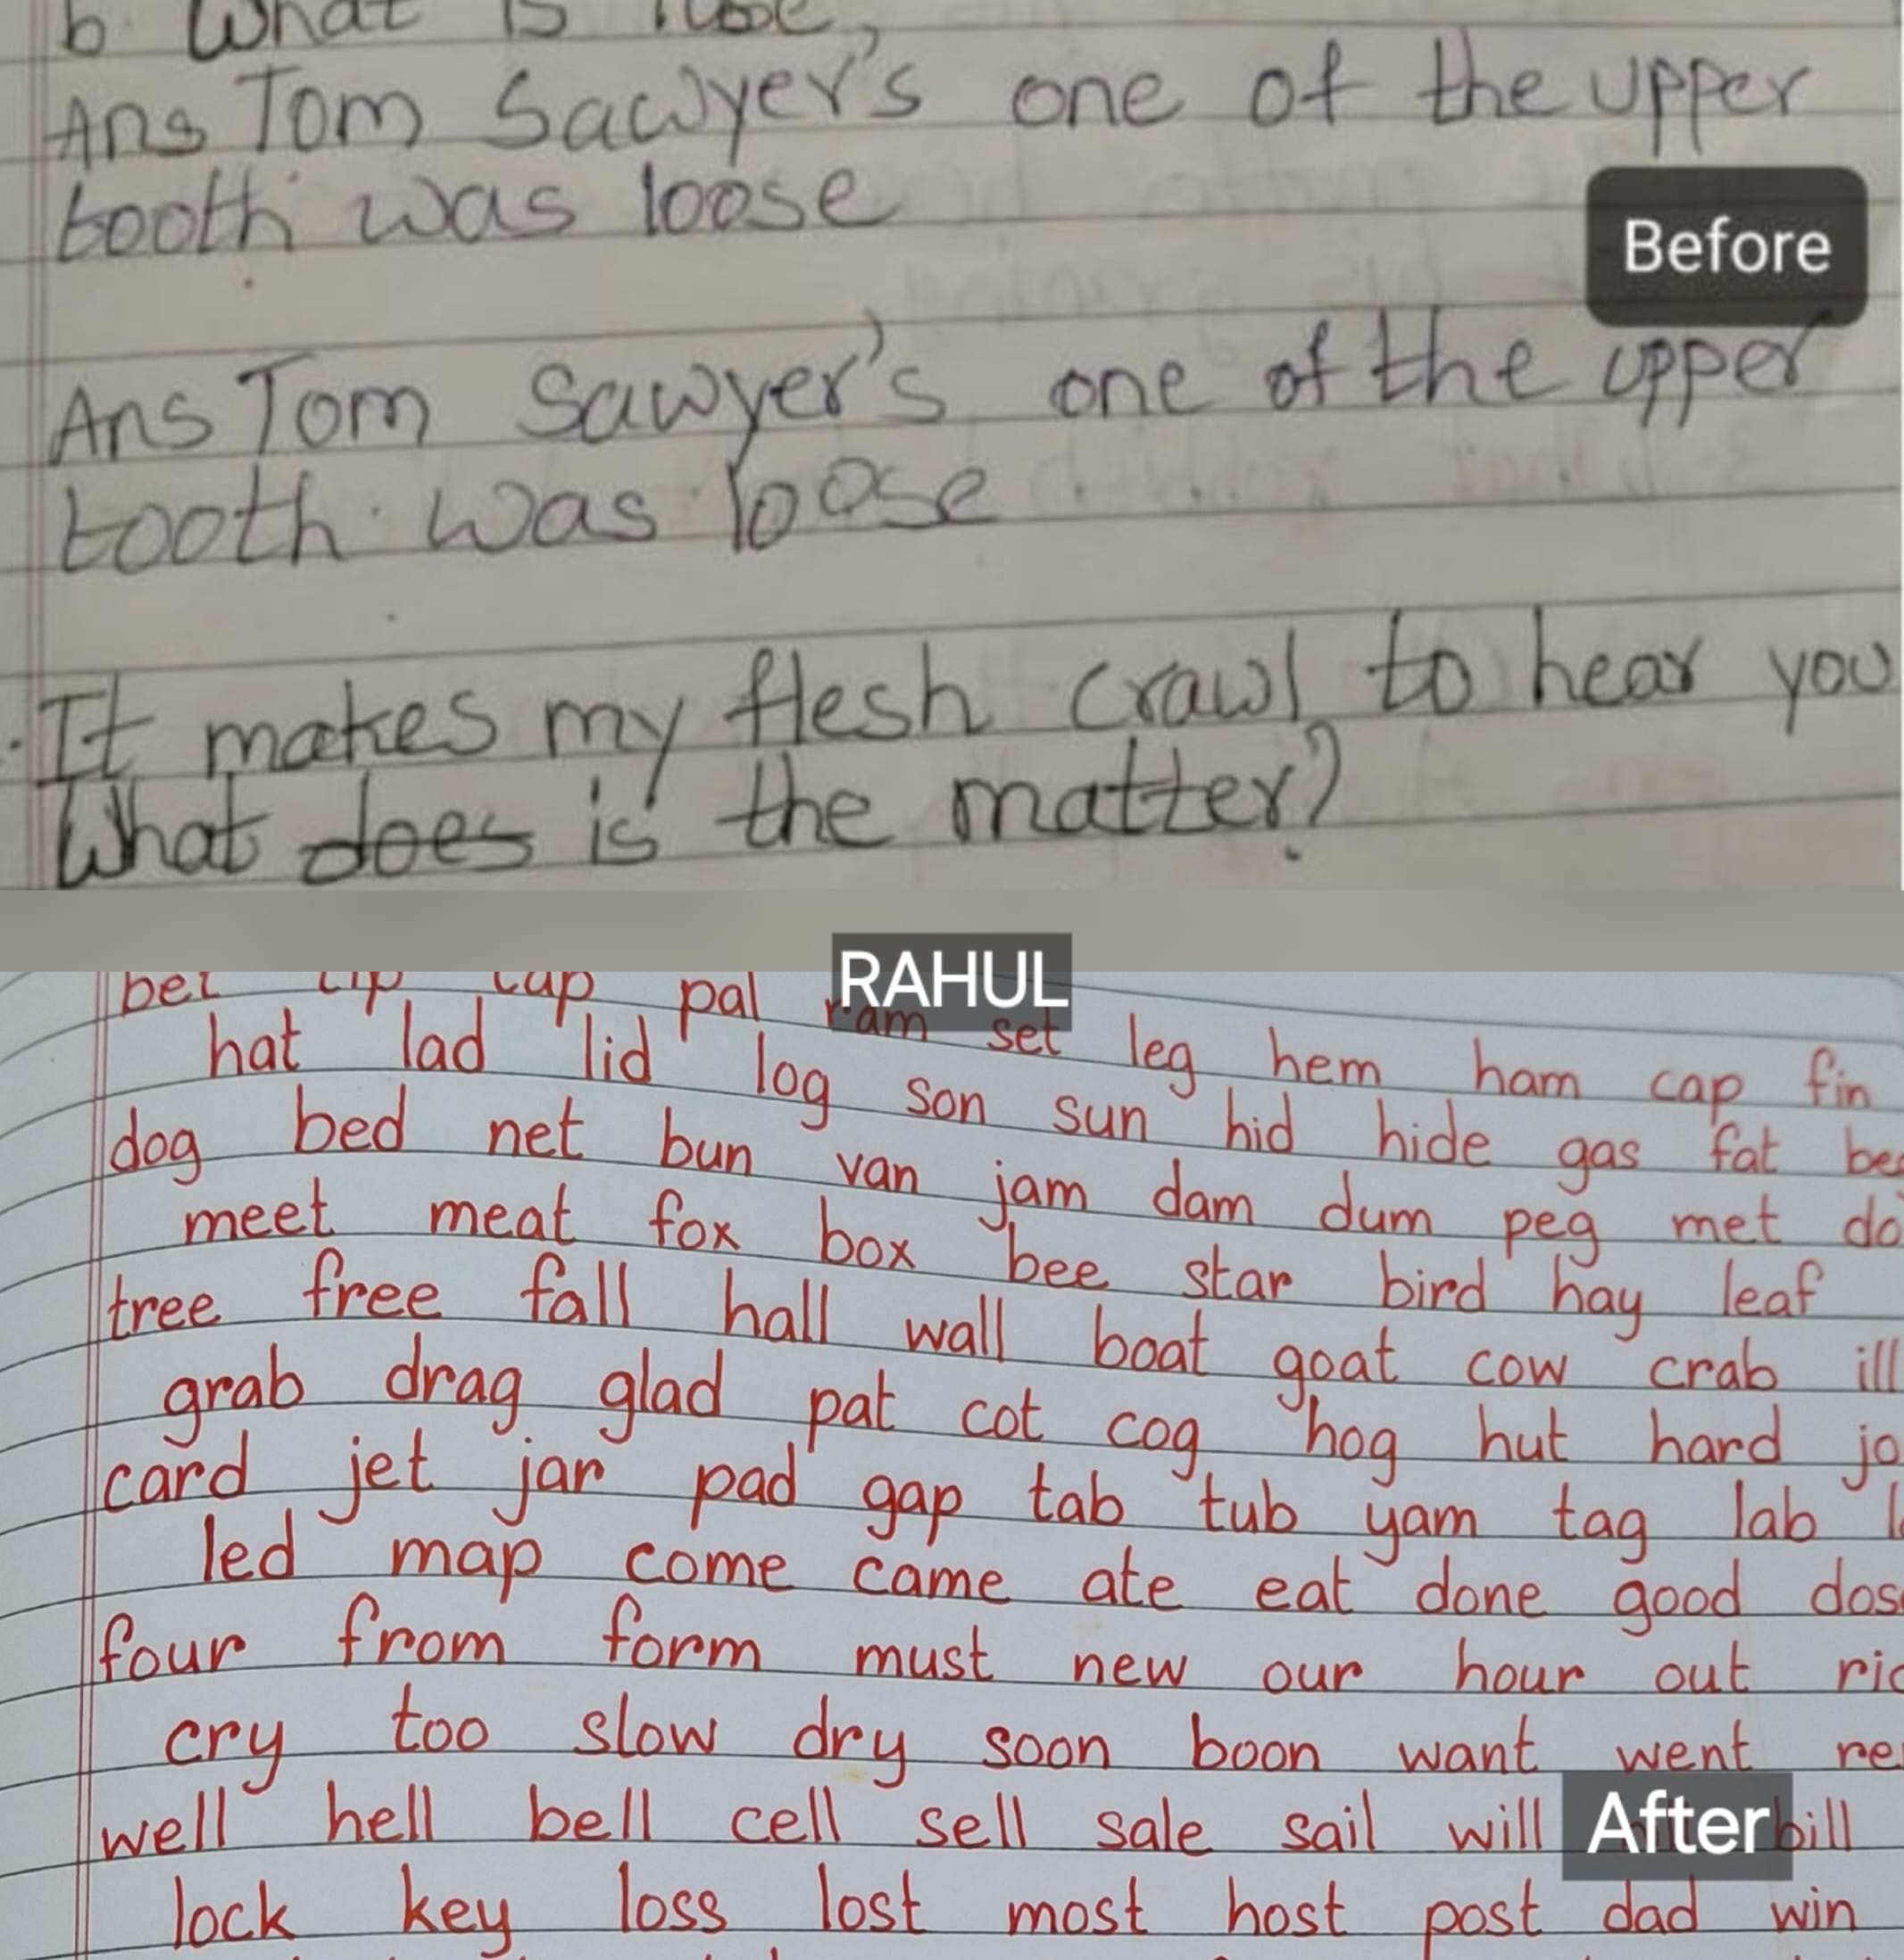 b. What is
Ans Tom Sawyer's one of the upper
tooth was loose
Before
Ans Tom Sawyer's one of the upper
tooth was loose
It makes my flesh crawl to hear you
What does is the matter?
RAHUL
cap pal ram set leg hem ham cap fin
hat lad lid log son sun hid hide gas fat
dog bed net bun van jam dam dum peg met
meet meat fox box bee star bird hay leaf
tree free fall hall wall boat goat cow crab ill
grab drag glad pat cot cog hog hut hard
card jet jar pad gap tab tub yam tag lab
led map come came ate eat done good
four from form must new our hour out
cry too slow dry soon boon want went
well hell bell cell sell sale sail will bill
After
lock key loss lost most host post dad win